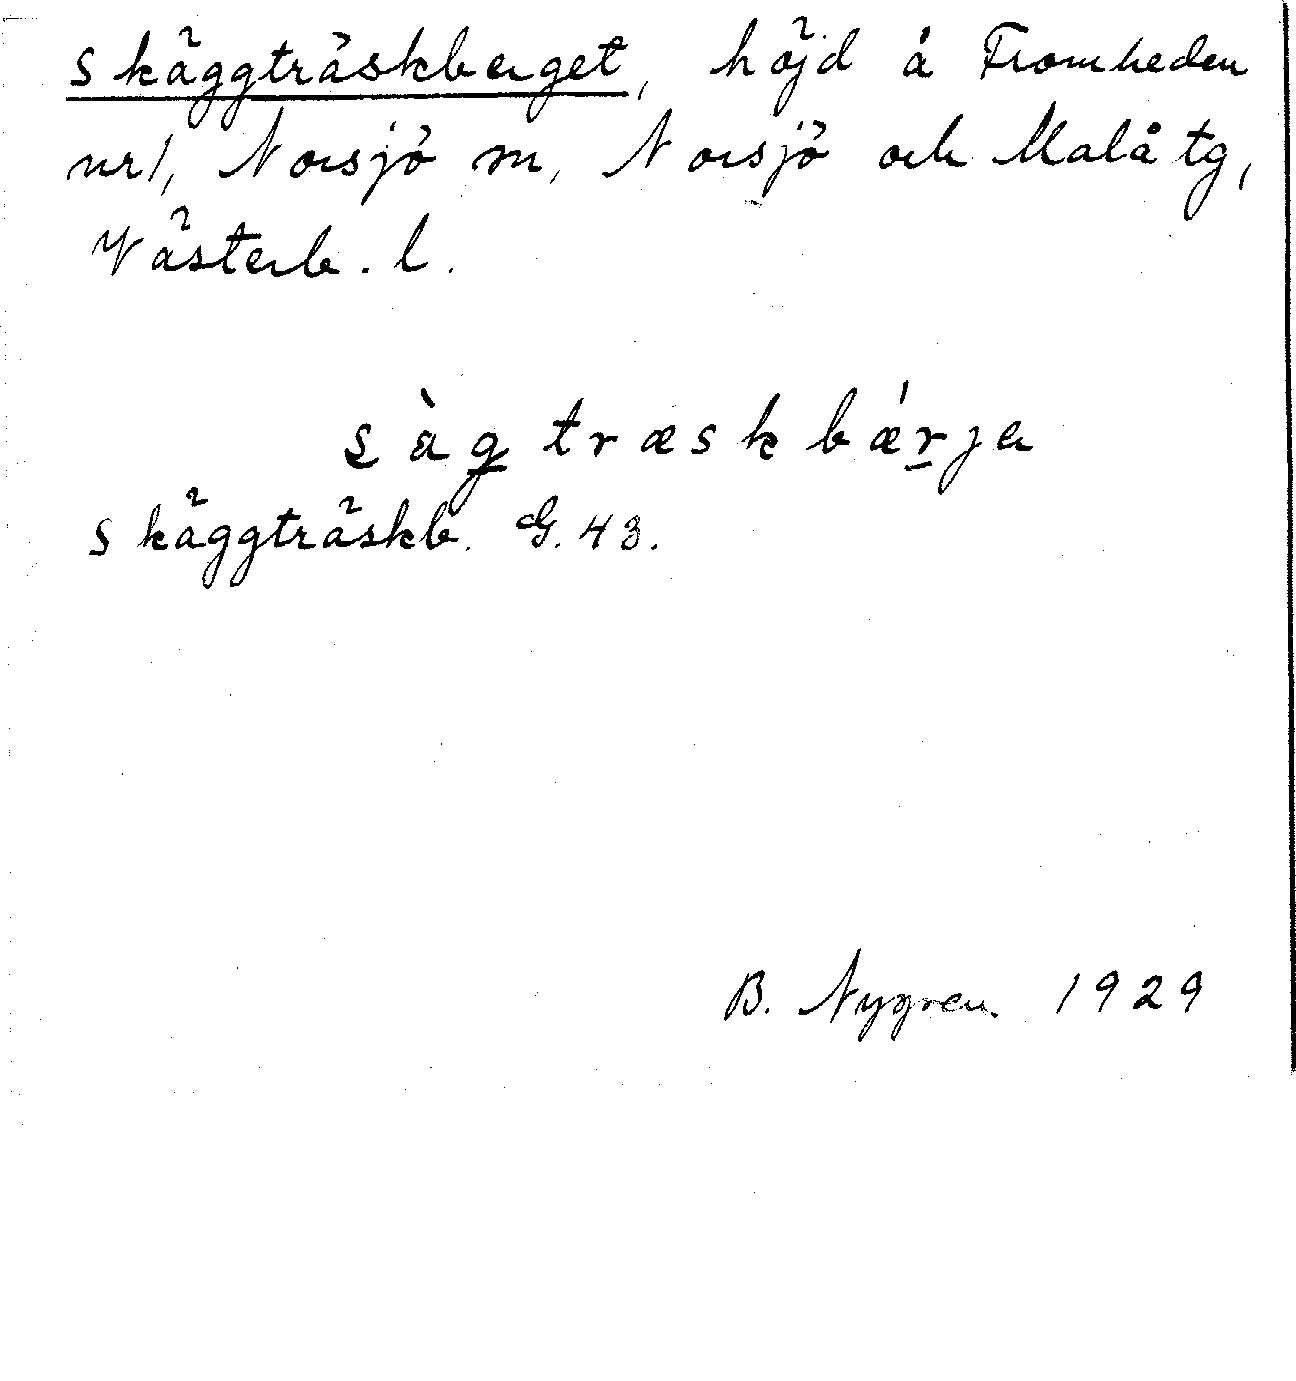 Skäggträskberget, höjd å Fromheden
nr1, Norsjö sn, Norsjö och Malå tg,
Västerb. l.
s̱àg̱træskbǽṟja
Skäggträskb. G. 43.
B. Nygren. 1929